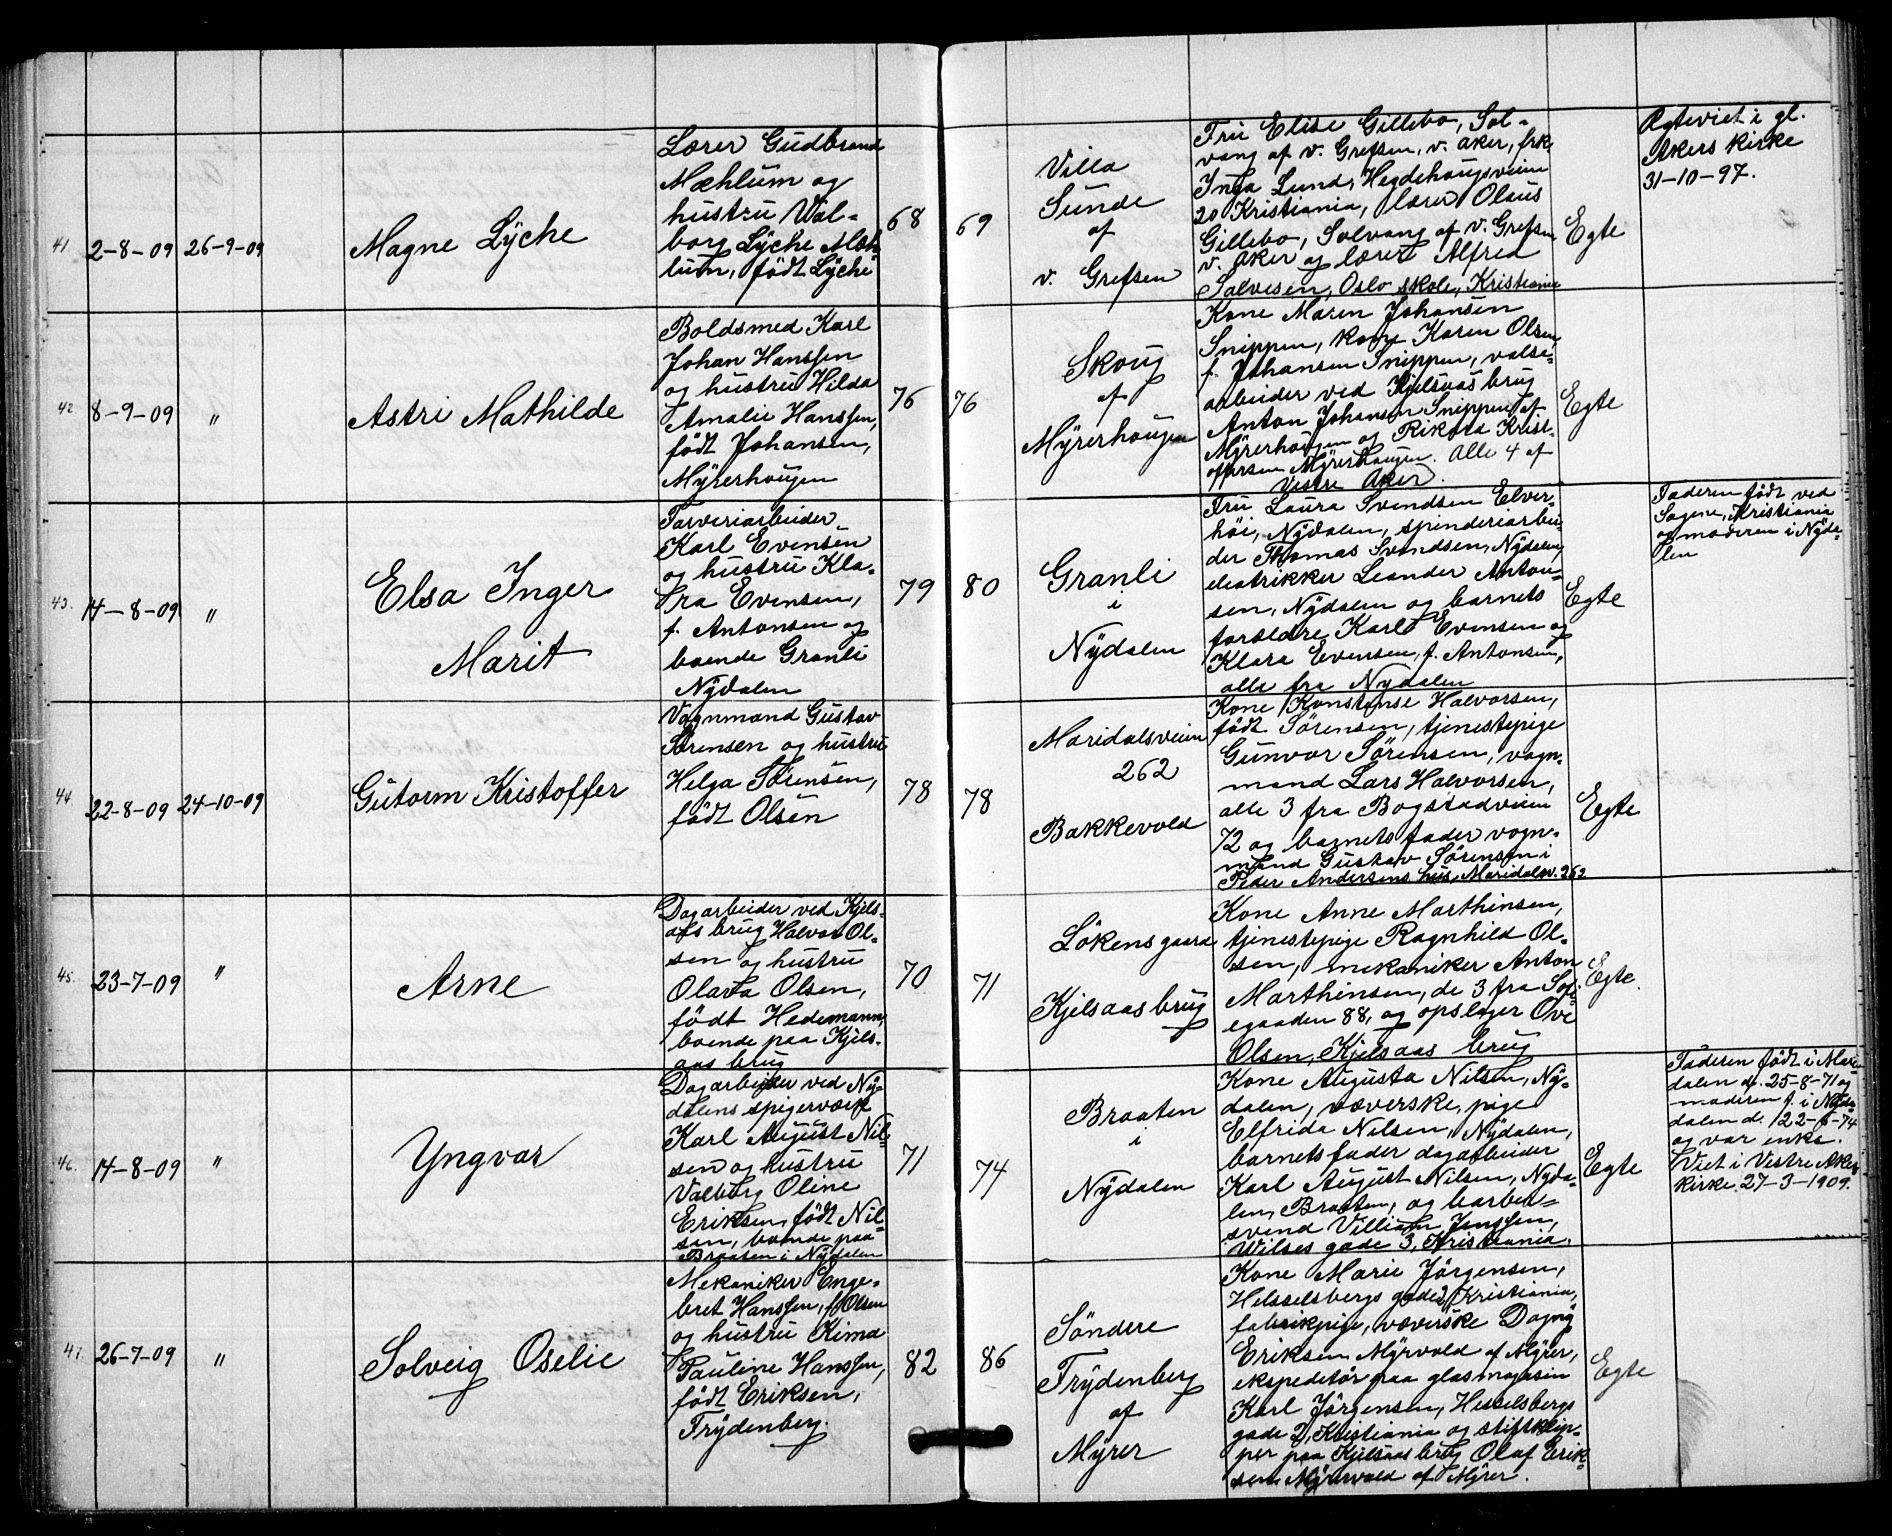 41.
2-8-09
26-9-09
Magne Lÿche
Lærer Gudbrand
Mæhlum og
hustru Val-
borg Lÿche Mæh-
lum, født Lÿche
68
69
Villa
Sunde
af
v. Grefsen
Fru Elise Gillebo, Sol-
vang af v. Grefsen, v. Aker, frk.
Inga Lund, Hegdehougsveien
20 Kristiania, lærer Olaus
Gillebo, Solvang af v. Grefsen
v. Aker og lærer Alfred
Salvesen, Oslo skole, Kristiania
Egte
Ægteviet i gl.
Akers kirke
31-10-97.
42
8-9-09
"
Astri Mathilde
Boldsmed Karl
Johan Hanssen
og hustru Hilda
Amalie Hanssen,
født Johansen,
Mÿrerhougen
76
76
Skoug
af
Mÿrerhougen
Kone Maren Johansen
Snippen, kone Karen Olsen,
f. Johansen Snippen, valse-
arbeider ved Kjelsaas brug
Anton Johansen Snippen af
Mÿrerhougen og Rikota Krist-
offersen Mÿrerhougen. Alle 4 af
Vestre Aker.
Egte
43.
14-8-09
"
Elsa Inger
Marit
Farveriarbeider
Karl Evensen
og hustru Kla-
ra Evensen,
f. Antonsen og
boende Granli
Nÿdalen
79
80
Granli
i
Nÿdalen
Fru Laura Svendsen Elver-
høi, Nÿdalen, spinderiarbei-
der Thomas Svendsen, Nÿdalen,
eletrikker Leander Anton-
sen, Nÿdalen og barnets
forældre Karl Evensen og
Klara Evensen, f. Antonsen,
alle fra Nÿdalen
Egte
Faderen født ved
Sagene, Kristiania
og moderen i Nÿda-
len
44.
22-8-09
24-10-09
Gütorm Kristoffer
Vognmand Gustav
Sørensen og hustru
Helga Sørensen,
født Olsen
78
78
Maridalsveien
262
Bakkevold
Kone Konstanse Halvorsen,
født Sørensen, tjenestepige
Gunvor Sørensen, vogn-
mand Lars Halvorsen,
alle 3 fra Bogstadveien
72 og barnets fader vogn-
mand Gustav Sørensen i
Peder Andersens hus, Maridalsv. 262
Egte
45.
23-7-09
"
Arne
Dagarbeider ved Kjels-
aas brug Halvor Ol-
sen og hustru
Olava Olsen,
født Hedemann,
boende paa Kjels-
aas brug
70
71
Løkensgaard
Kjelsaas brug
Kone Anne Marthinsen,
tjenestepige Ragnhild Ol-
sen, mekaniker Anton
Marthinsen, de 3 fra Sofi-
egaaden 88, og opslager Ove
Olsen, Kjelsaas brug
Egte.
46.
14-8-09
"
Yngvar
Dagarbeider ved Nÿ-
dalens spigerværk
Karl August Nil-
sen og hustru
Valborg Oline
Eriksen, født Nil-
sen, boende paa
Braaten i Nÿdalen
71
74
Braaten
i
Nÿdalen
Kone Augusta Nilsen, Nÿ-
dalen, væverske, pige
Elfrida Nilsen, Nÿdalen,
barnets fader dagarbeider
Karl August Nilsen, Nÿda-
len, Braaten, og barber-
svend Villiam Jenssen,
Wilses gade 3, Kristiania.
Egte
Faderen født i Mari-
dalen d. 25-8-71 og
moderen f. i Nÿda-
dalen d. 22-6-74
og var enke.
Viet i Vestre Aker
kirke 27-3-1909.
47.
26-7-09
"
Solveig Oselie
Mekaniker Enge-
bret Hanssen, f. Olsen
og hustru Kima
Pauline Hanssen,
født Eriksen,
Frÿdenberg.
82
86
Søndere
Frÿdenberg
af
Mÿrer
Kone Marie Jørgensen,
Hesselsbergs gade 2, Kristiania,
fabrikpige, væverske Dagnÿ
Eriksen Mÿrvold af Mÿrer,
ekspeditør paa glasmagasin
Karl Jørgensen, Hesselsbergs
gade 2, Kristiania og stiftklip-
per paa Kjelsaas brug Olaf Erik-
sen Mÿrervold af Mÿrer.
Egte